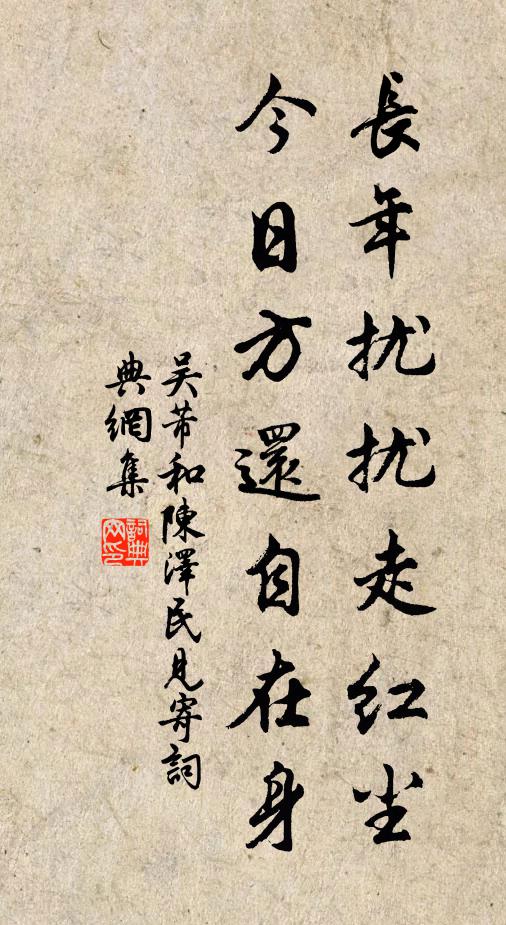 長年扰扰走红尘
今日方還自在身
吴芾和陳澤民見寄詞
典網集
詞典网印